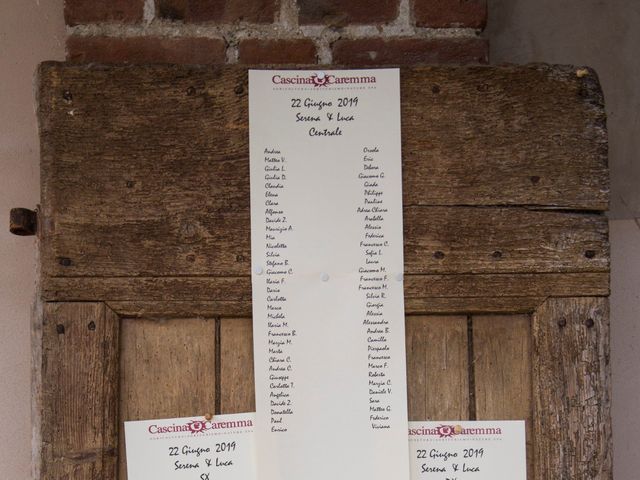 Cascina Caremma
AGRICOLTURA•AGRITURISMO•NATURE SPA
22 Giugno 2019
Serena & Luca
Centrale
Andrea
Matteo V.
Giulia L.
Giulia D.
Claudia
Elena
Clara
Alfonso
Davide Z.
Maurizio A.
Mia
Nicoletta
Silvia
Stefano B.
Giacomo C.
Ilaria F.
Dario
Carlotta
Marco
Michela
Ilaria M.
Francesco B.
Marzia M.
Marta
Chiara C.
Andrea C.
Giuseppe
Carlotta T.
Angelica
Davide Z.
Donatella
Paul
Enrico
Orsola
Eric
Debora
Giacomo G.
Giada
Philippe
Pauline
Adrea Chiara
Arabella
Alessio
Federica
Francesco C.
Sofia L.
Laura
Giacomo M.
Francesco F.
Francesco M.
Silvia R.
Giorgia
Alessia
Alessandra
Andrea B.
Camilla
Pierpaolo
Francesca
Marco F.
Roberta
Marzia C.
Daniele V.
Sara
Matteo G.
Federico
Viviana
Cascina Caremma
AGRICOLTURA•AGRITURISMO•NATURE SPA
22 Giugno 2019
Serena & Luca
SX
Cascina Caremma
22 Giugno 2019
Serena & Luca
DX